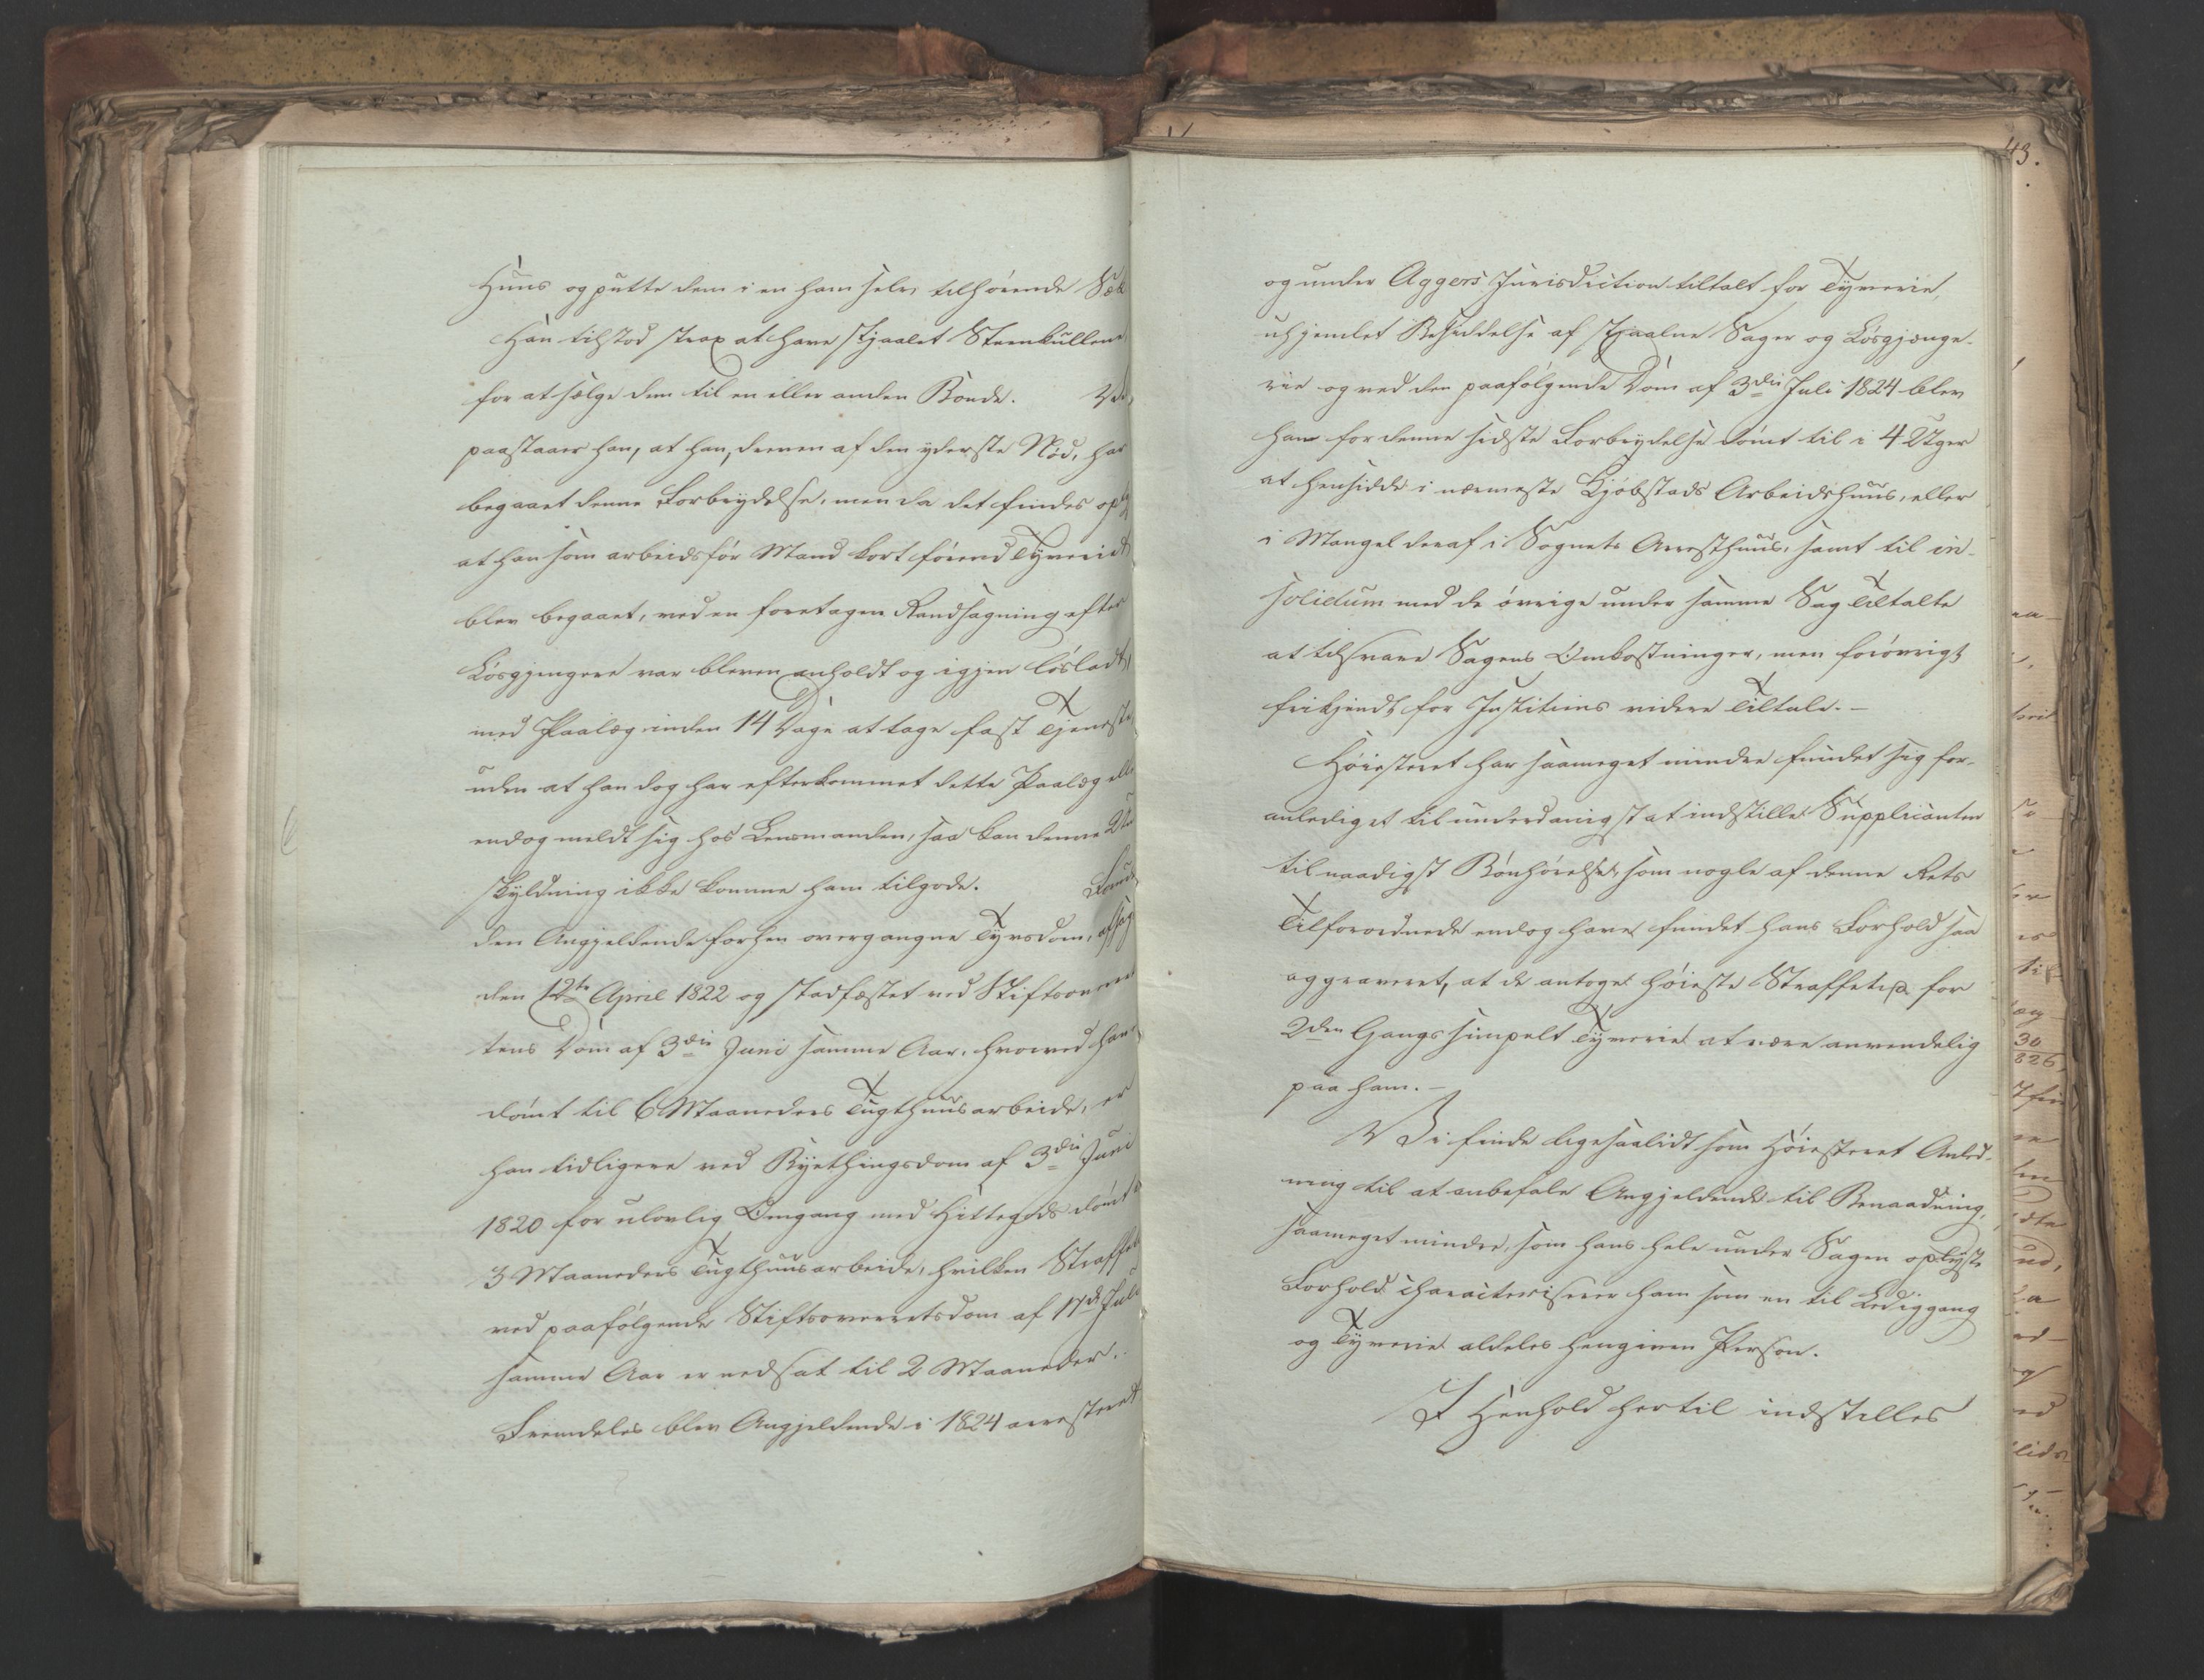 Huus og putte dem i en ham selv tilhørende Sæk
Han tilstod strax at have stjaalet Steenkullene
for at sælge dem til en eller anden Bonde. Vel
paastaaer han, at han, dreven af den yderste Nød, har
begaaet denne Forbrydelse, men da det findes oply
at han som arbeidsfør Mand kort førend Tyveriet
blev begaaet, ved en foretagen Randsagning efter
Løsgjengere var bleven anholdt og igjen løsladt,
med Paalæg inden 14 Dage at tage fast Tjeneste
uden at han dog har efterkommet dette Paalæg elle
endog meldt sig hos Lensmanden, saa kan denne Und
skyldning ikke komme ham tilgode. Foruden
den Angjeldende forhen overgangne Tyvsdom, afsagt
den 12te April 1822 og stadfæstet ved Stiftsoverret
tens Dom af 3die Juni samme Aar, hvorved han
dømt til 6 Maaneders Tugthuusarbeide, er
han tidligere ved Byethingsdom af 3die Juni
1820 for ulovlig Omgang med Hittegods dømt
3 Maaneders Tugthuusarbeide, hvilken Straffe
ved paafølgende Stiftsoverretsdom af 17de Juli
samme Aar er nedsat til 2 Maaneder.
Fremdeles blev Angjeldende i 1824 arresteret
43.
og under Aggers Jurisdiction tiltalt for Tyverie,
uhjemlet Besiddelse af stjaalne Sager og Løsgjænge-
rie og ved den paafølgende Dom af 3die Juli 1824 blev
han for denne sidste Forbrydelse dømt til i 4 Uger
at hensidde i nærmeste Kjøbstads Arbeidshuus, eller
i Mangel deraf i Sognets Arresthuus, samt til in-
solidum med de øvrige under samme Sag Tiltalte
at tilsvare Sagens Omkostninger, men forøvrigt
frikjendt for Justitiens videre Tiltale. –
Høiesteret har saameget mindre fundet sig for-
anlediget til underdanigst at indstille Supplicanten
til naadigst Bønhørelse, som nogle af denne Rets
Tilforordnede endog have fundet hans Forhold saa
aggraveret, at de antoge høieste Straffetip for
2den Gangs simpelt Tyverie at være anvendelig
paa ham. –
Vi finde ligesaalidt som Høiesteret Anled-
ning til at anbefale Angjeldende til Benaadning,
saameget mindre, som hans hele under Sagen oplyste
Forhold characteriserer ham som en til Lediggang
og Tyverie aldeles hengiven Person.
I Henhold hertil indstilles